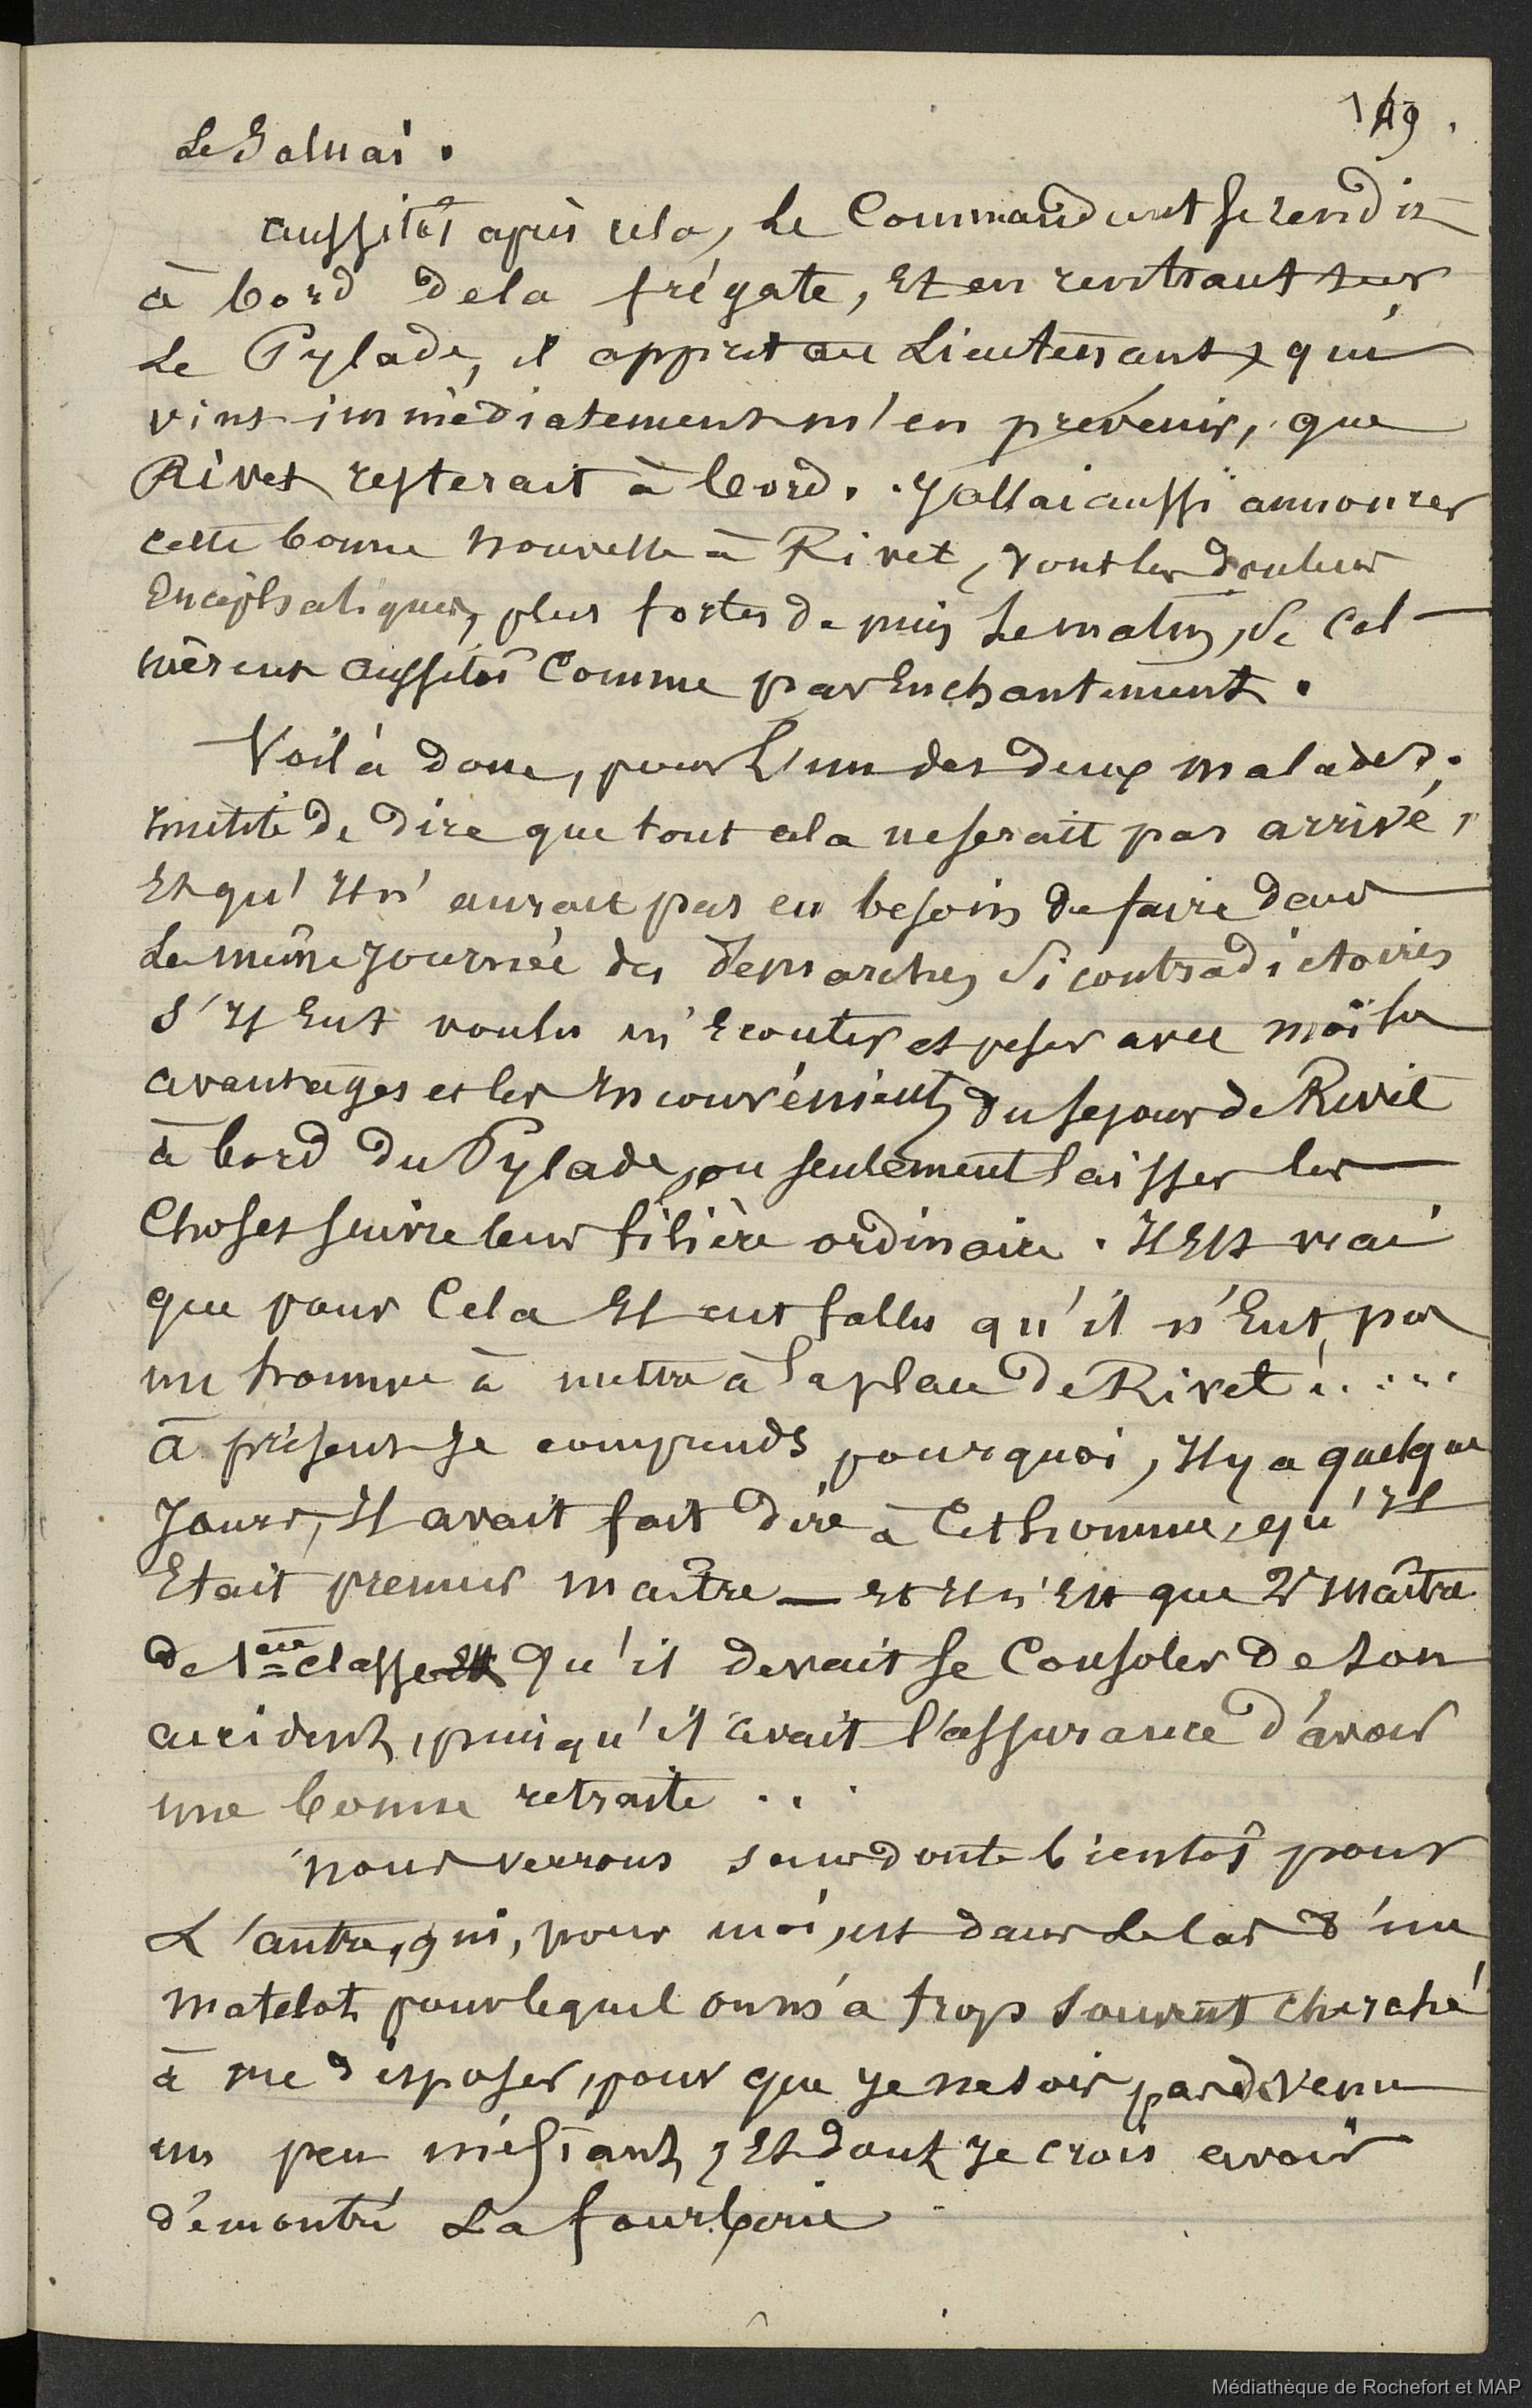 149.
Le Galnai.
aussitôt après cela, Le Commandant se rendit
à bord de la frégate, Et en rentrant sur
Le Pylade, il apprit au Lieutenant, qui
vint immédiatement m'en prévenir, que
Rivet resterait à bord. J'allai aussi annoncer
cette bonne nouvelle à Rivet, dont les douleurs
Encéphaliques, plus fortes depuis Le matin, se cal-
mèrent aussitôt Comme par Enchantement.
Voilà donc, pour L'un des deux malades;
inutile de dire que tout cela ne serait pas arrivé,
Et qu'Il n'aurait pas eu besoin de faire dans
La même Journée des démarches si contradictoires
S'Il Eut voulu m'Ecouter et peser avec moi les
avantages et les Inconvénients du séjour de Rivet
à bord du Pylade, ou seulement laisser les
Choses suivre leur filière ordinaire. Il Est vrai
que pour Cela Il eut fallu qu'il n'Eut pas
un homme à mettre à la place de Rivet!.....
à présent Je comprends pourquoi, Il y a quelques
Jours, Il avait fait dire à Cet homme, qu'Il
Etait premier maître — et Il n'Est que 2e maître
de 1ère classe Qu'il devait se Consoler de son
accident, puisqu'il avait l'assurance d'avoir
une bonne retraite...
nous verrons sans doute bientôt pour
L'autre, qui, pour moi, est dans Le cas d'un
matelot pour lequel on m'a trop souvent cherché
à me disposer, pour que Je ne sois pas devenu
un peu méfiant, Et dont Je crois avoir
démontré La fourberie
Médiathèque de Rochefort et MAP